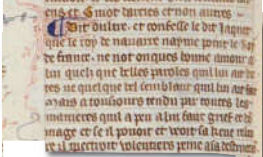 ens et
Dit oultre. et confesse le dit Jaquet
que le roy de navarre nayme point le Roy
de france. ne not onques bonne amour a
lui quelque belles paroles quil lui ait dites
ne quelque bel semblant quil lui ait
Mais a tousiours tendu par toutes les
manieres quil a peu a lui faire grief et do
mage et se il pouoit et veoit sa heure
il mectroit volentiers peine a sa